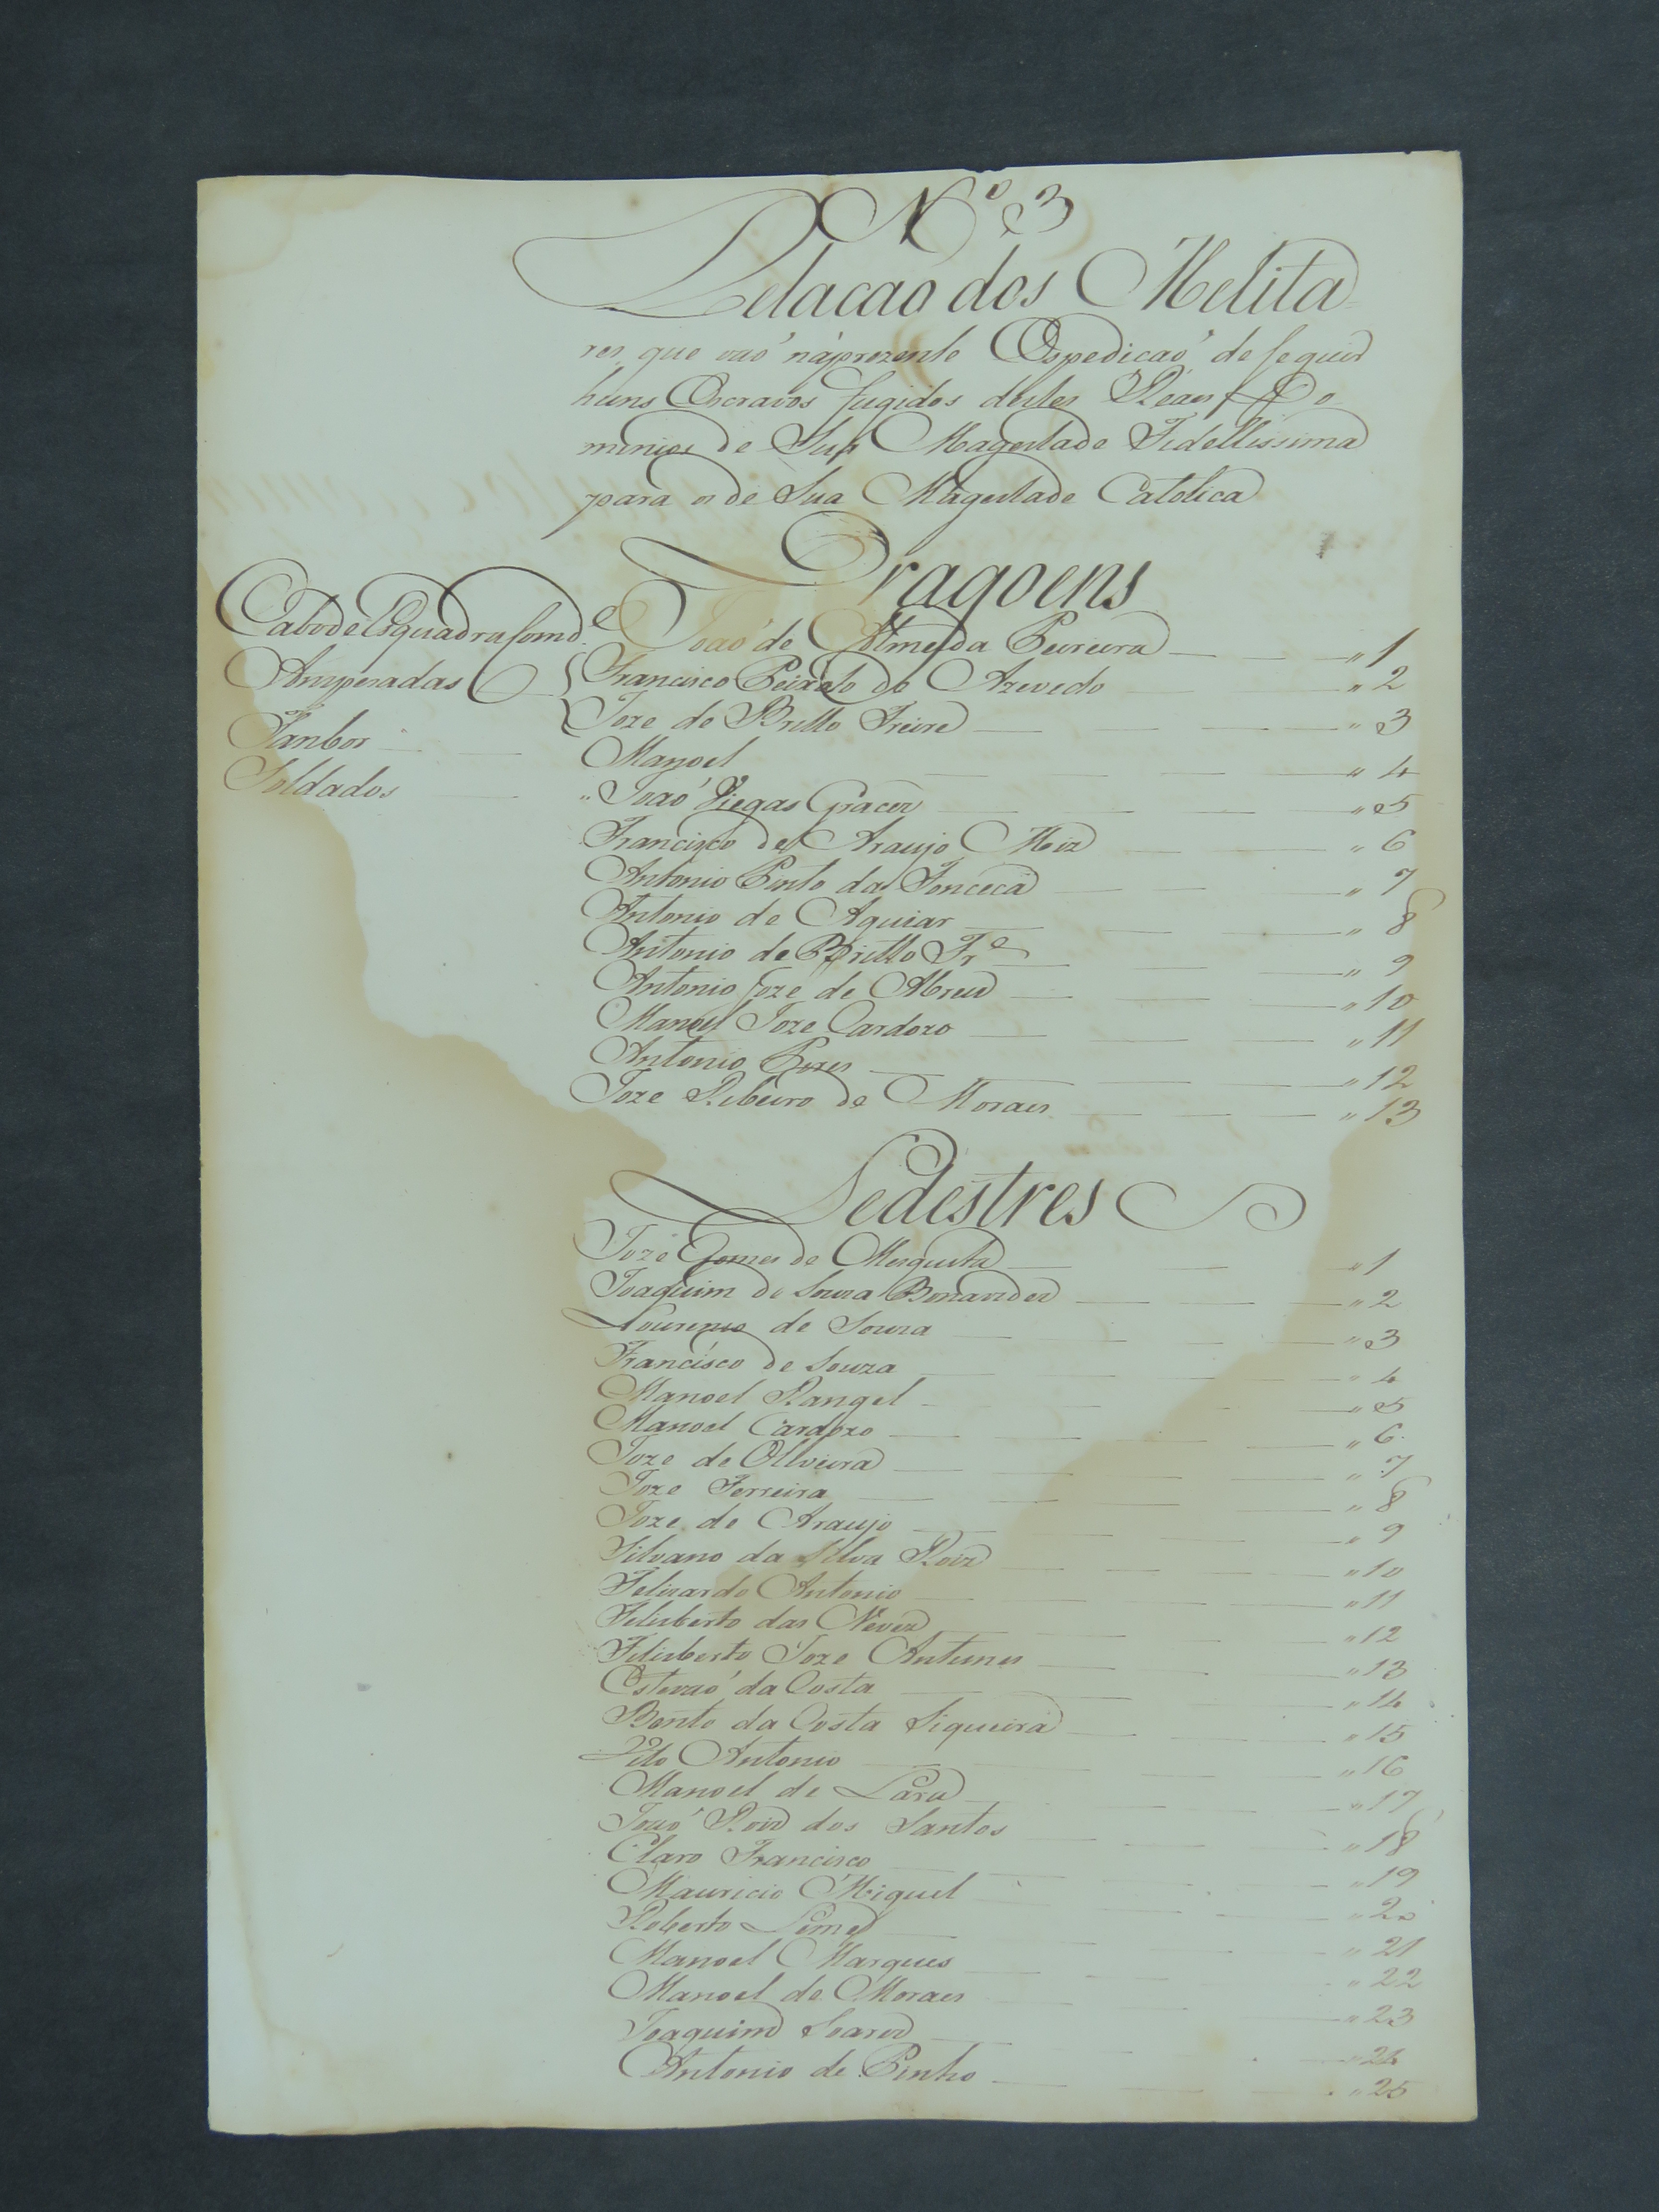 Nº 3
Relacao dos Melita
res que vaó náprezente Espedicaó de seguir
huns Escravos fugidos destes Reaes Do
minios de Sua Magestade Fidellissima
para os de Sua Magestade Catolica
Dragoens
Cabo de Esquadra Comd.e Joaó de Almeyda Pereira " 1
Amperadas Francisco Peixoto de Azevedo " 2
Joze de Britto Freire " 3
Tanbor Manoel " 4
Soldados " Joaó Viegas Gracez " 5
Francisco de Araujo " 6
Antonio Pinto da Fonceca " 7
Antonio de Aquiar " 8
Antonio de Britto Fr.e " 9
Antonio Joze de Abreu " 10
Manoel Joze Cardozo " 11
Antonio Pires " 12
Joze Ribeiro de Moraes " 13
Pedestres
Joze Gomes de Mesquita " 1
Joaquim de Souza Benavides " 2
Lourenço de Souza " 3
Francisco de Souza " 4
Manoel Rangel " 5
Manoel Cardozo " 6
Joze de Olliveira " 7
Joze Ferreira " 8
Joze de Araujo " 9
Silvano da Silva Roiz " 10
Felizardo Antonio " 11
Feliberto das Nevez " 12
Feliberto Joze Antunes " 13
Estevaó da Costa " 14
Bento da Costa Siqueira " 15
Vito Antonio " 16
Manoel de Lara " 17
Joaó Roiz dos Santos " 18
Claro Francisco " 19
Mauricio Miguel " 20
Roberto Leme " 21
Manoel Marques " 22
Manoel de Moraes " 23
Joaquim Soarez " 24
Antonio de Pinho " 25